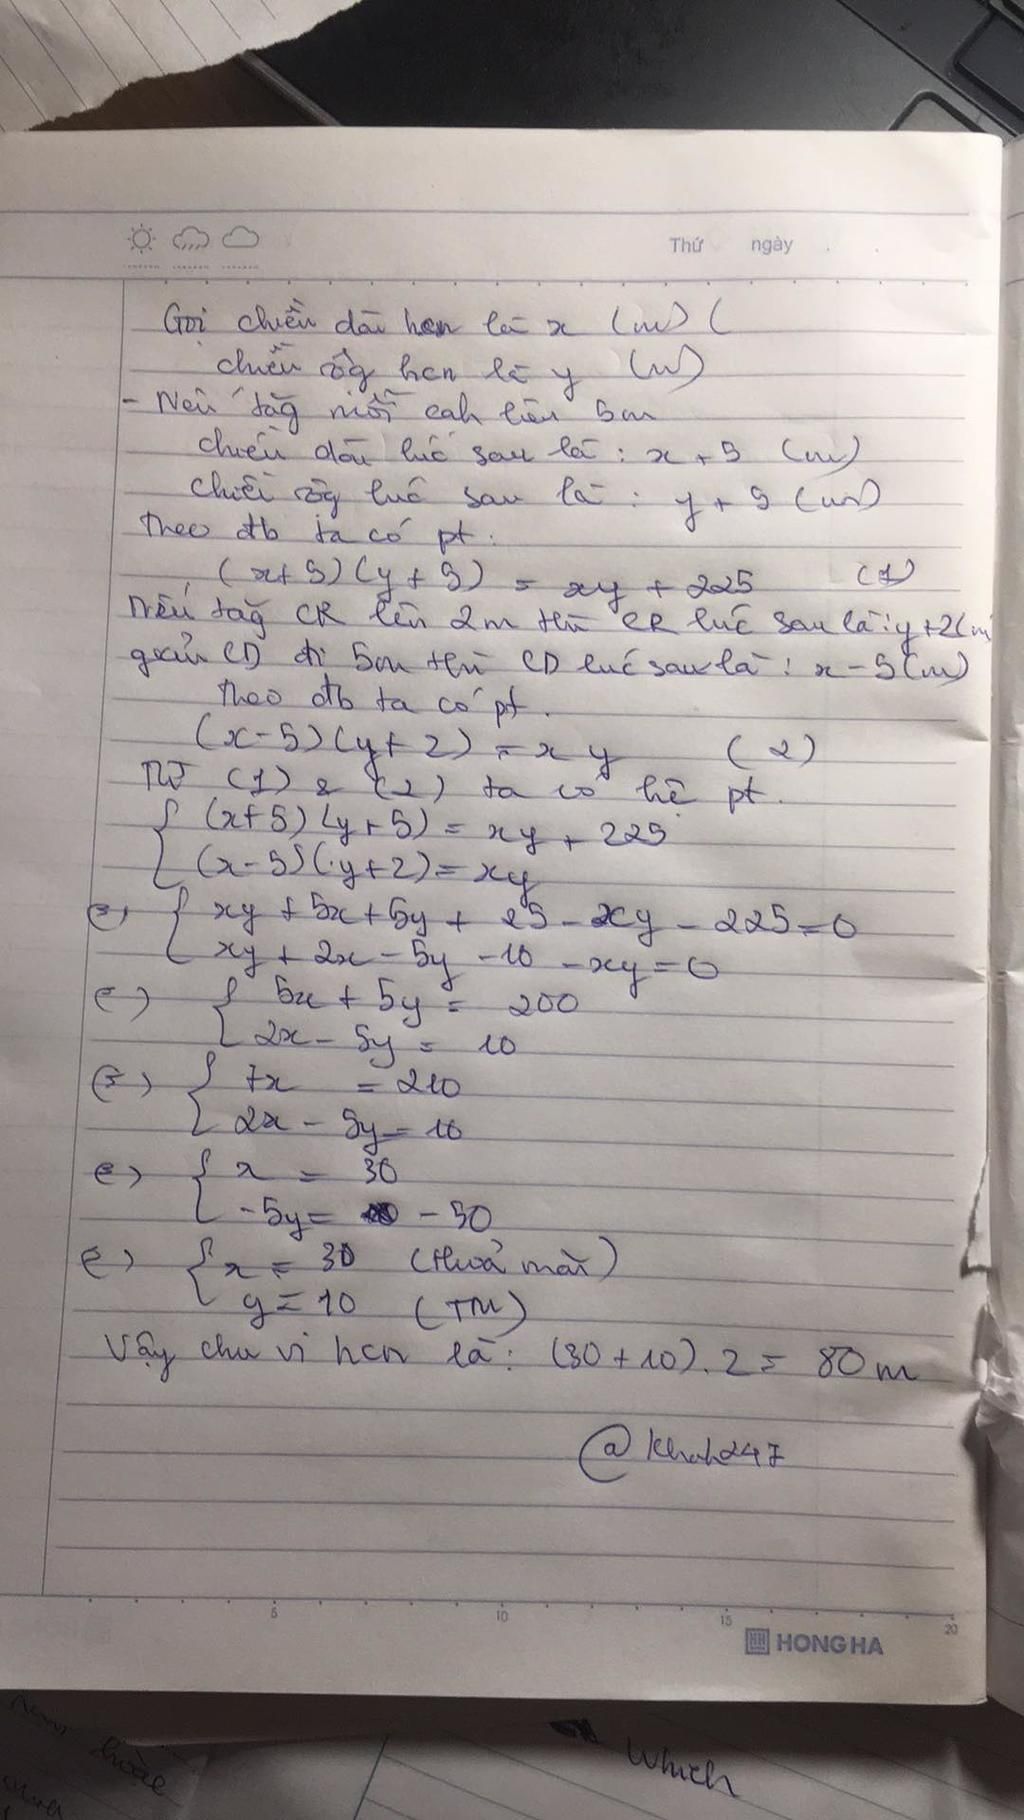 Thứ ngày
Gọi chiều dài hcn là x (m) (
chiều rộg hcn là y (m)
- Nếu tăg mỗi cạh lên 5m
chiều dài lúc sau là : x + 5 (m)
chiều rộg lúc sau là : y + 5 (m)
Theo đb ta có pt :
(x+5)(y+5) = xy + 225 (1)
Nếu tăg CR lên 2m thì CR lúc sau là : y+2(m
giảm CD đi 5m thì CD lúc sau là : x-5(m)
Theo đb ta có pt.
(x-5)(y+2) = xy (2)
Từ (1) & (2) ta có hệ pt.
{ (x+5)(y+5) = xy + 225
(x-5)(y+2) = xy
<=> { xy + 5x + 5y + 25 - xy - 225 = 0
xy + 2x - 5y - 10 - xy = 0
<=> { 5x + 5y = 200
2x - 5y = 10
<=> { 7x = 210
2x - 5y = 10
<=> { x = 30
-5y = - 50
<=> { x = 30 (thoả mãn)
y = 10 (TM)
Vậy chu vi hcn là : (30+10).2 = 80m
@Khah247
5 10 15 20
HONG HA
Which